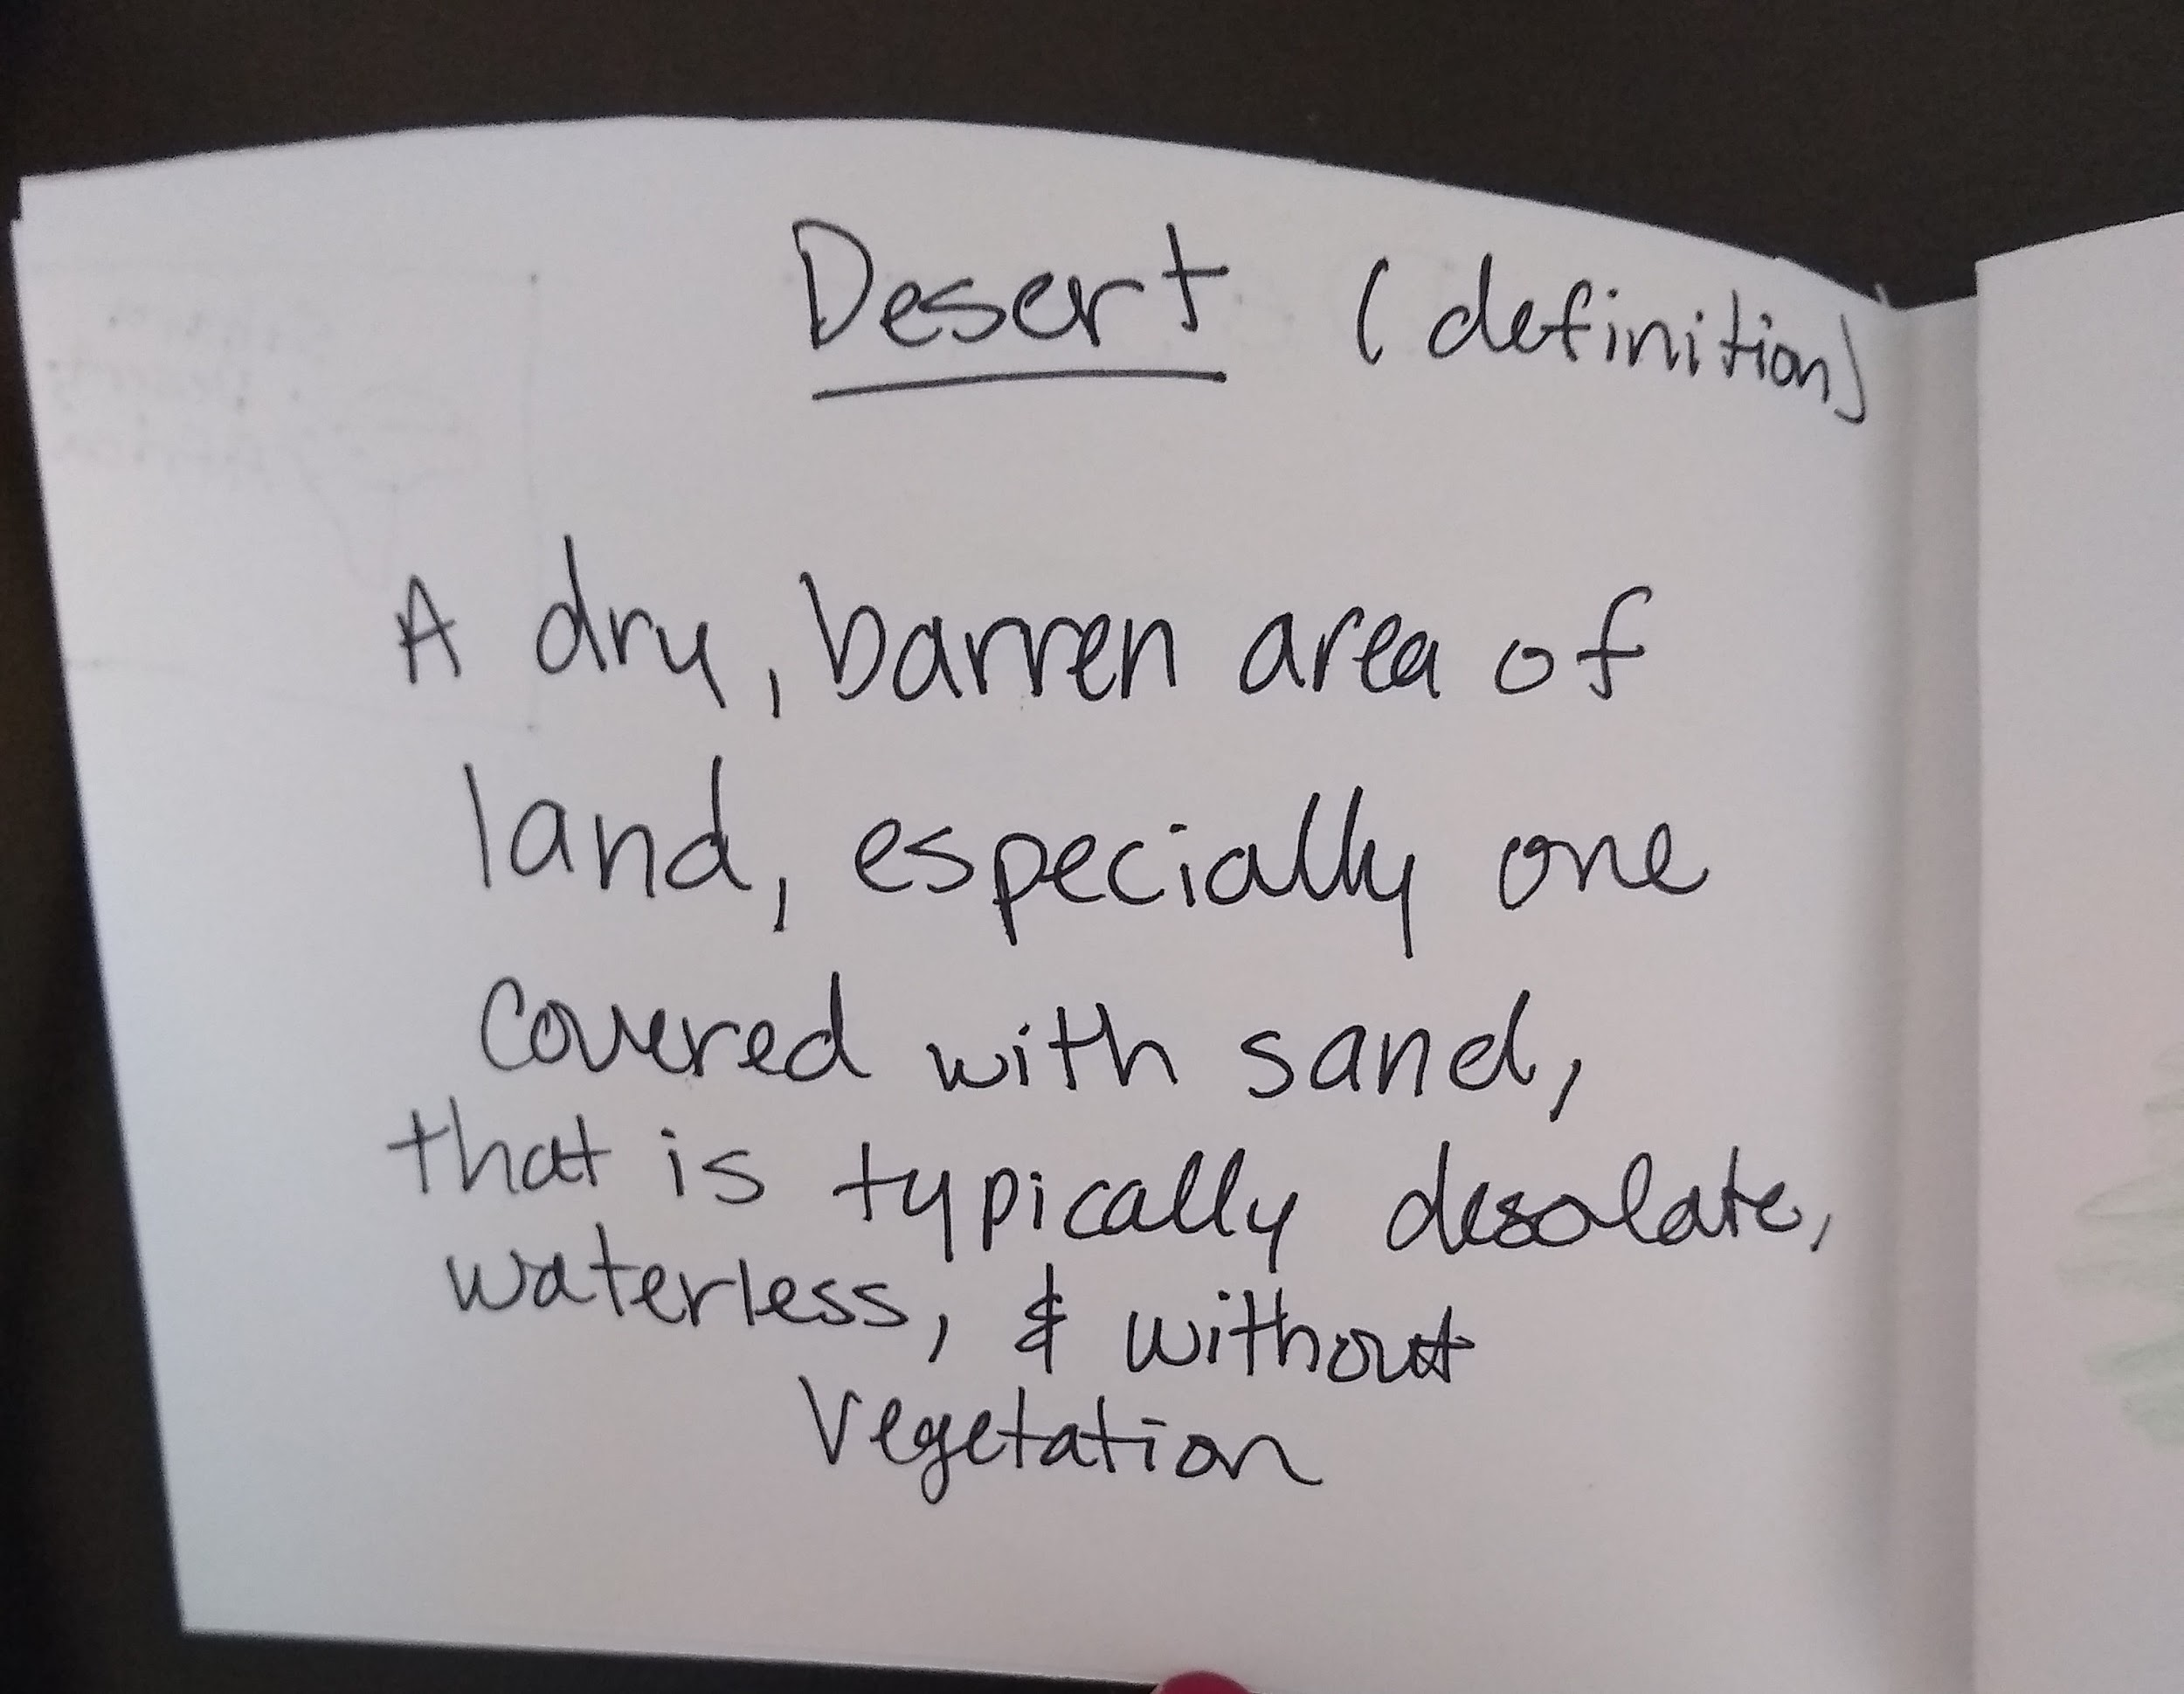 Desert (definition)
A dry, barren area of
land, especially one
covered with sand,
that is typically desolate,
waterless, & without
Vegetation